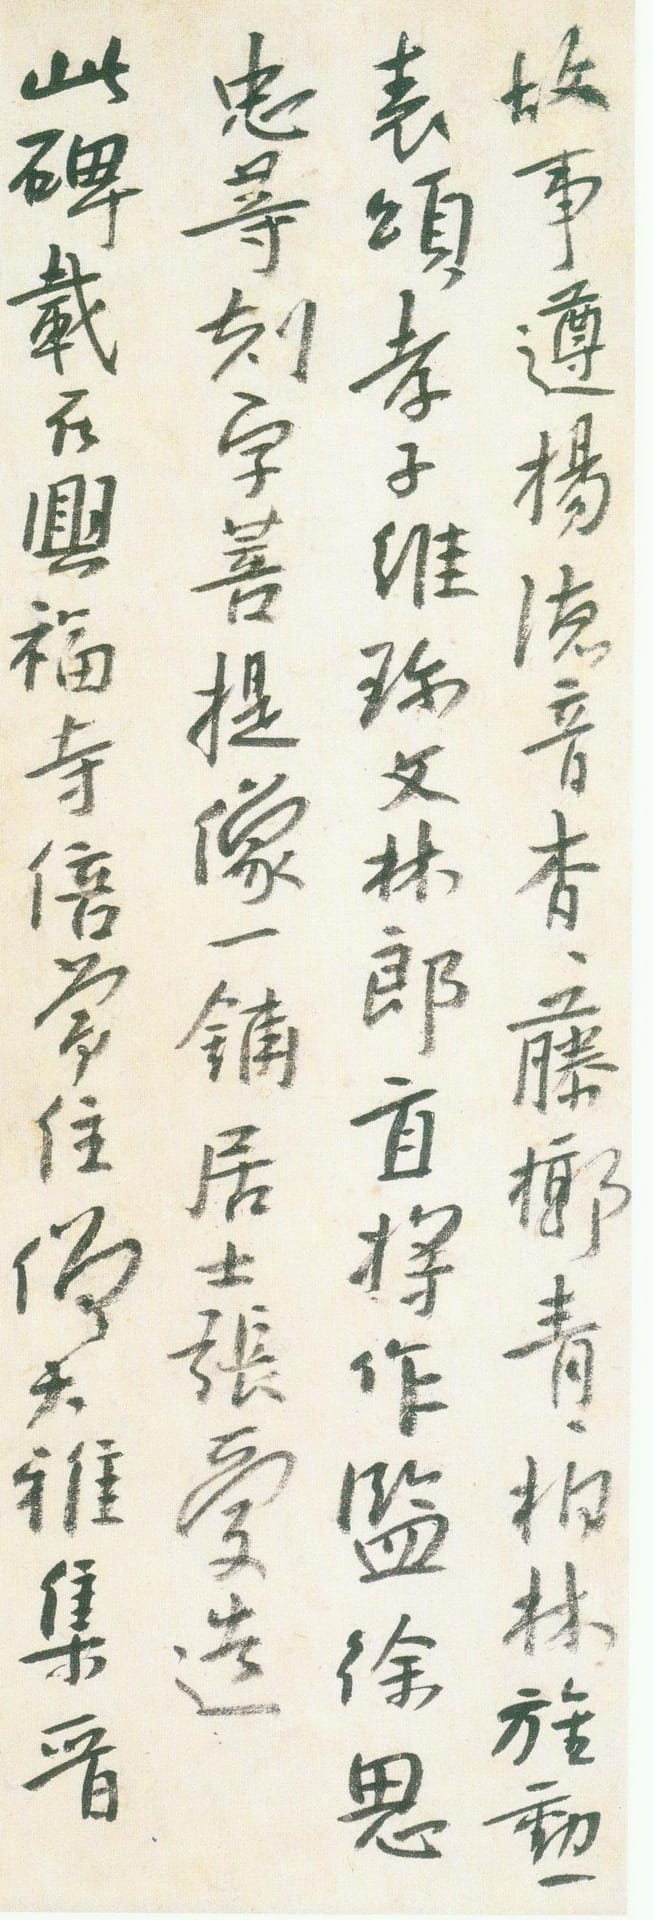 故事遵揚德音杳〻藤槨青〻柏林旌勳
表頌孝子維珍文林郎直將作監徐思
忠等刻字菩提像一鋪居士張愛造
此碑載在興福寺倍常住僧大雅集晋